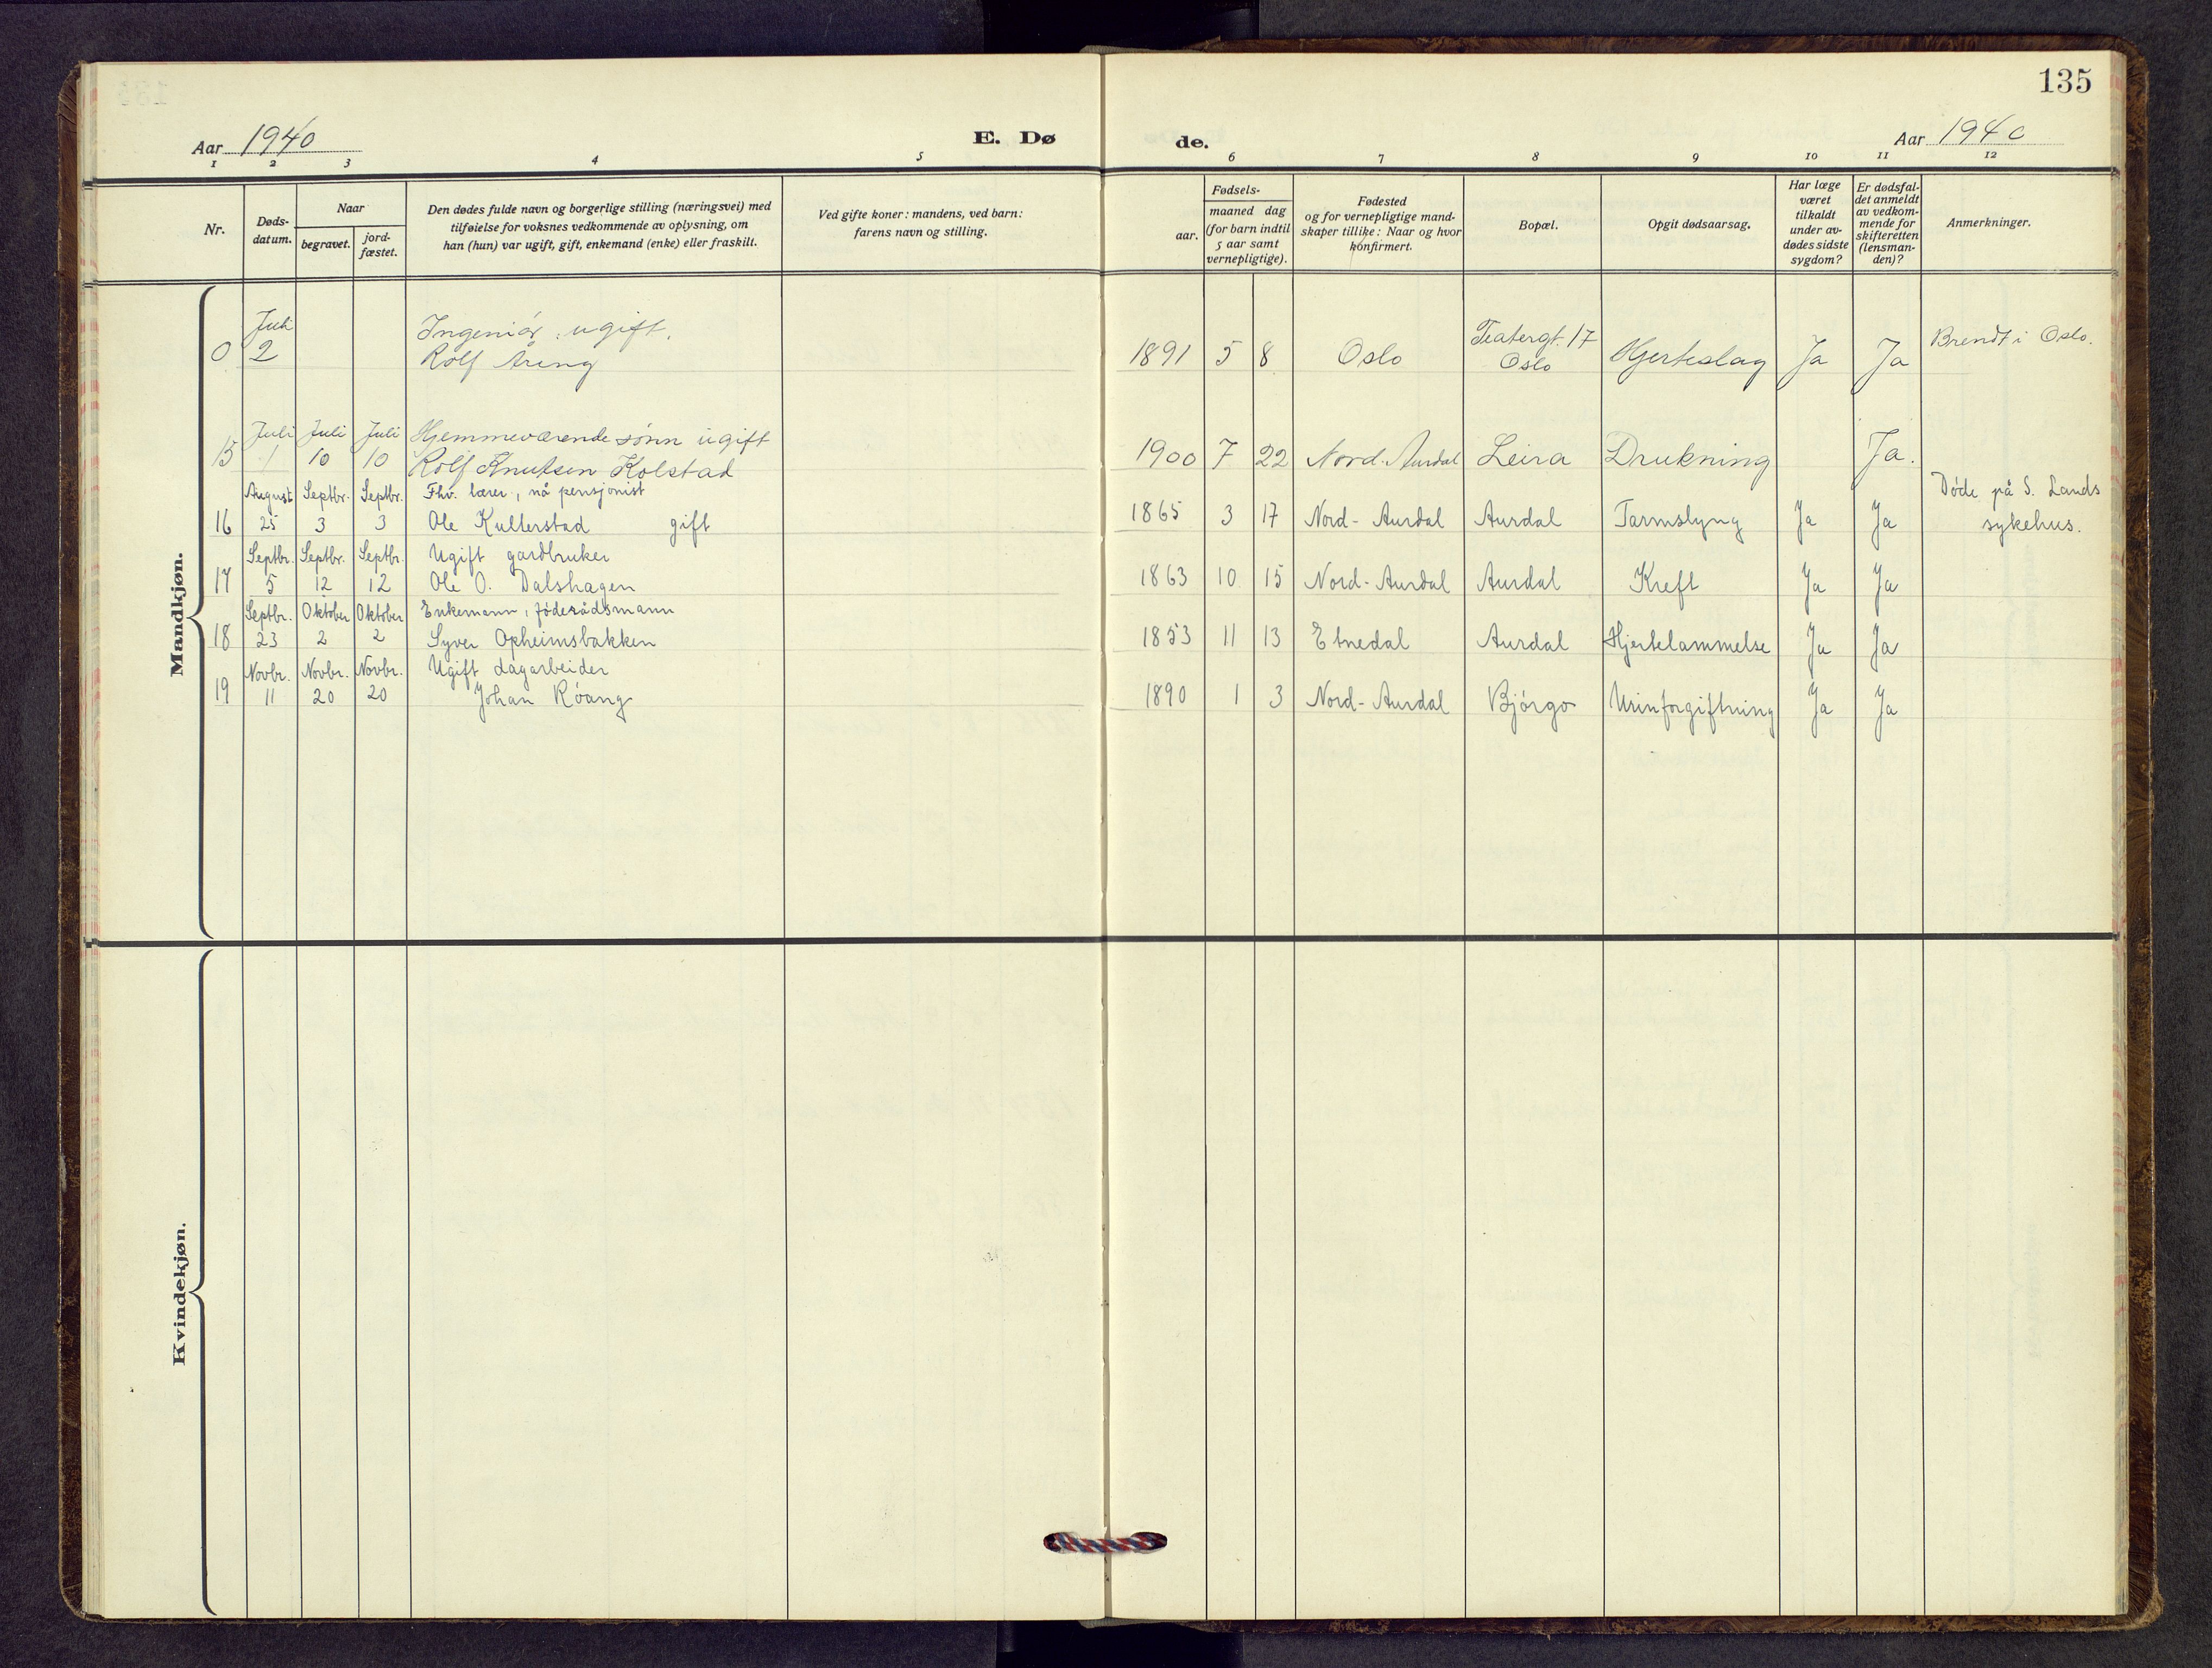 135
Aar 1940 E. Dø de. Aar 1940
1 2 3 4 5 6 7 8 9 10 11 12
Nr.
Døds-
datum.
Naar
begravet.
jord-
fæstet.
Den dødes fulde navn og borgerlige stilling (næringsvei) med
tilføielse for voksnes vedkommende av oplysning, om
han (hun) var ugift, gift, enkemand (enke) eller fraskilt.
Ved gifte koner: mandens, ved barn:
farens navn og stilling.
Fødsels-
aar.
maaned dag
(for barn indtil
5 aar samt
vernepligtige).
Fødested
og for vernepligtige mand-
skaper tillike: Naar og hvor
konfirmert.
Bopæl.
Opgit dødsaarsag.
Har læge
været
tilkaldt
under av-
dødes sidste
sygdom?
Er dødsfal-
det anmeldt
av vedkom-
mende for
skifteretten
(lensman-
den)?
Anmerkninger.
Mandkjøn.
Juli Ingeniør, ugift. Teatergt. 17 Brendt i Oslo.
0 2 Rolf Åreng 1891 5 8 Oslo Oslo Hjerteslag Ja Ja
Juli Juli Juli Hjemmeværende sønn ugift
15 1 10 10 Rolf Knutsen Kolstad 1900 7 22 Nord-Aurdal Leira Drukning Ja.
August Septbr. Septbr. Fhv. lærer, nå pensjonist Døde på S. Lands
16 25 3 3 Ole Kulterstad gift 1865 3 17 Nord-Aurdal Aurdal Tarmslyng Ja Ja sykehus.
Septbr. Septbr. Septbr. Ugift gardbruker
17 5 12 12 Ole O. Dalshagen 1863 10 15 Nord-Aurdal Aurdal Kreft Ja Ja
Septbr. Oktober Oktober Enkemann, föderådsmann
18 23 2 2 Syver Opheimsbakken 1853 11 13 Etnedal Aurdal Hjertelammelse Ja Ja
Novbr. Novbr. Novbr. Ugift dagarbeider
19 11 20 20 Johan Röang 1890 1 3 Nord-Aurdal Björgo Urinforgiftning Ja Ja
Kvindekjøn.